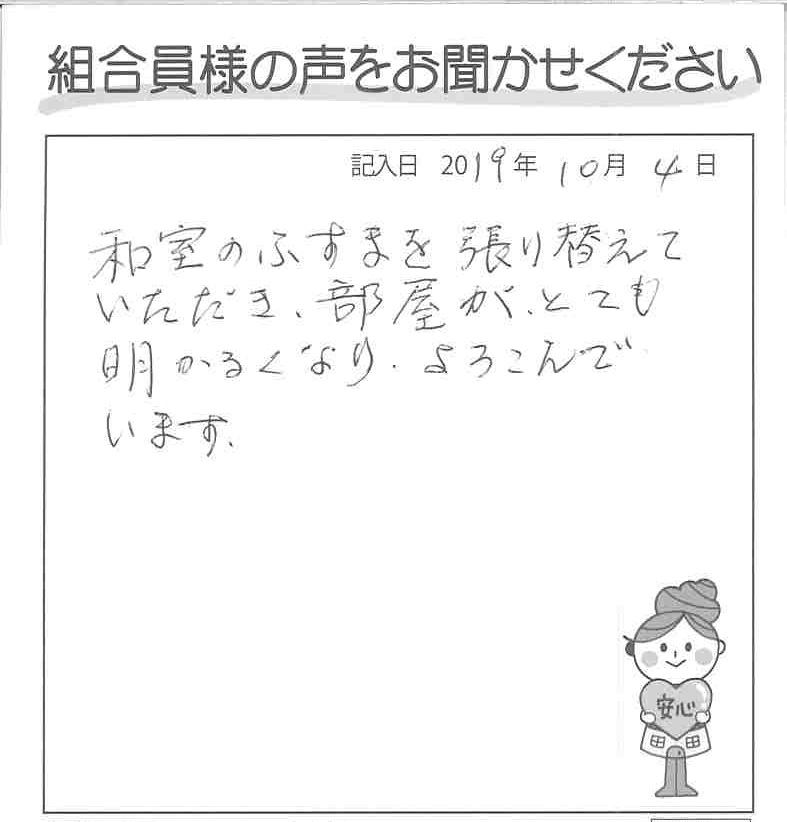 組合員様の声をお聞かせください
記入日 2019年 10月 4日
和室のふすまを張り替えて
いただき、部屋が、とても
明かるくなり、よろこんで
います。
安心